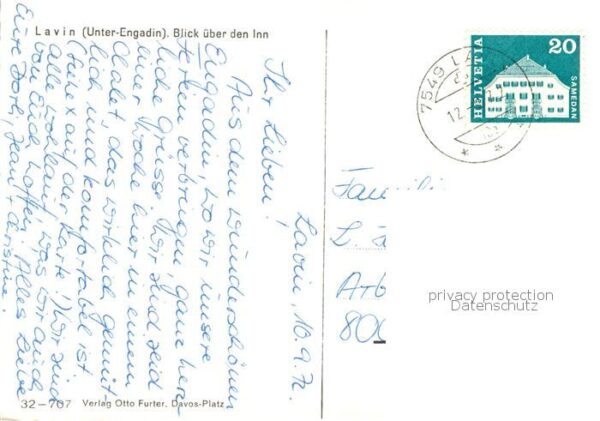 Lavin (Unter-Engadin). Blick über den Inn
Lavin, 10.9.72
Ihr Lieben!
Aus dem wunderschönen
Engadin, wo wir unsere
Ferien verbringen, ganz herz-
liche Grüsse. Wir sind seid
einer Woche hier in einem
Chalet, das wirklich gemüt-
lich und komfortabel ist
auf der Karte!) Wir sind
alle wohlauf, was wir auch
von Euch hoffen. Alles Liebe
Eure
32-707 Verlag Otto Furter, Davos-Platz
HELVETIA
20
SAMEDAN
7549 LA
12.
Fam
L.
Arb
800
privacy protection
Datenschutz